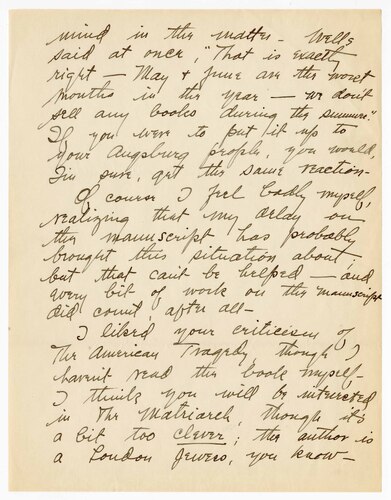 mind in the matter – Wells
said at once, "That is exactly
right – May & June are the worst
months in the year – we don't
sell any books during the summer."
If you were to put it up to
your Augsburg people, you would,
I'm sure, get the same reaction –
Of course I feel badly myself,
realizing that my delay on
the manuscript has probably
brought this situation about,
but that can't be helped – and
every bit of work on the manuscript
did count, after all –
I liked your criticism of
The American Tragedy, though I
haven't read the book myself –
I think you will be interested
in The Matriarch, though it's
a bit too clever; the author is
a London Jewess, you know –